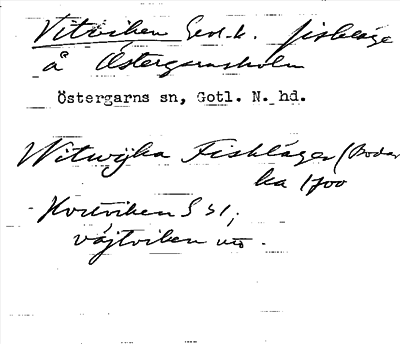 Vitviken Geol.k. fiskläge
å Östergarnsholm
Östergarns sn, Gotl. N. hd.
Witwijka Fiskläger (Bodar
ka 1700
Hvitviken S 51;
väjtviken uo